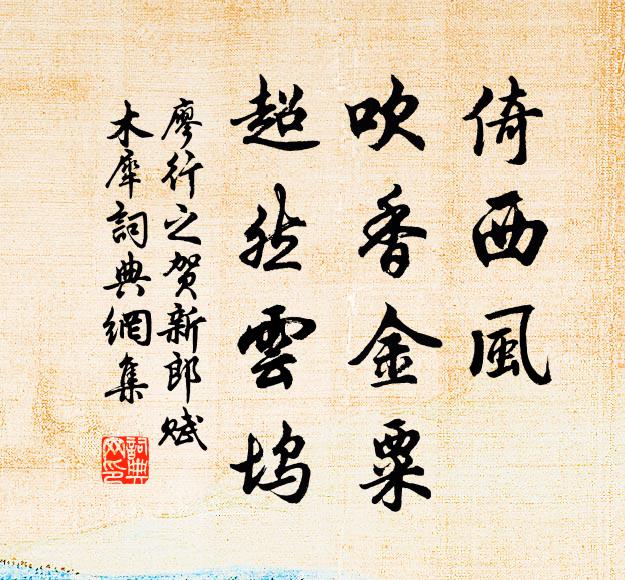 倚西風
吹香金粟
超然雲塢
廖行之賀新郎賦
木犀詞典網集
詞典